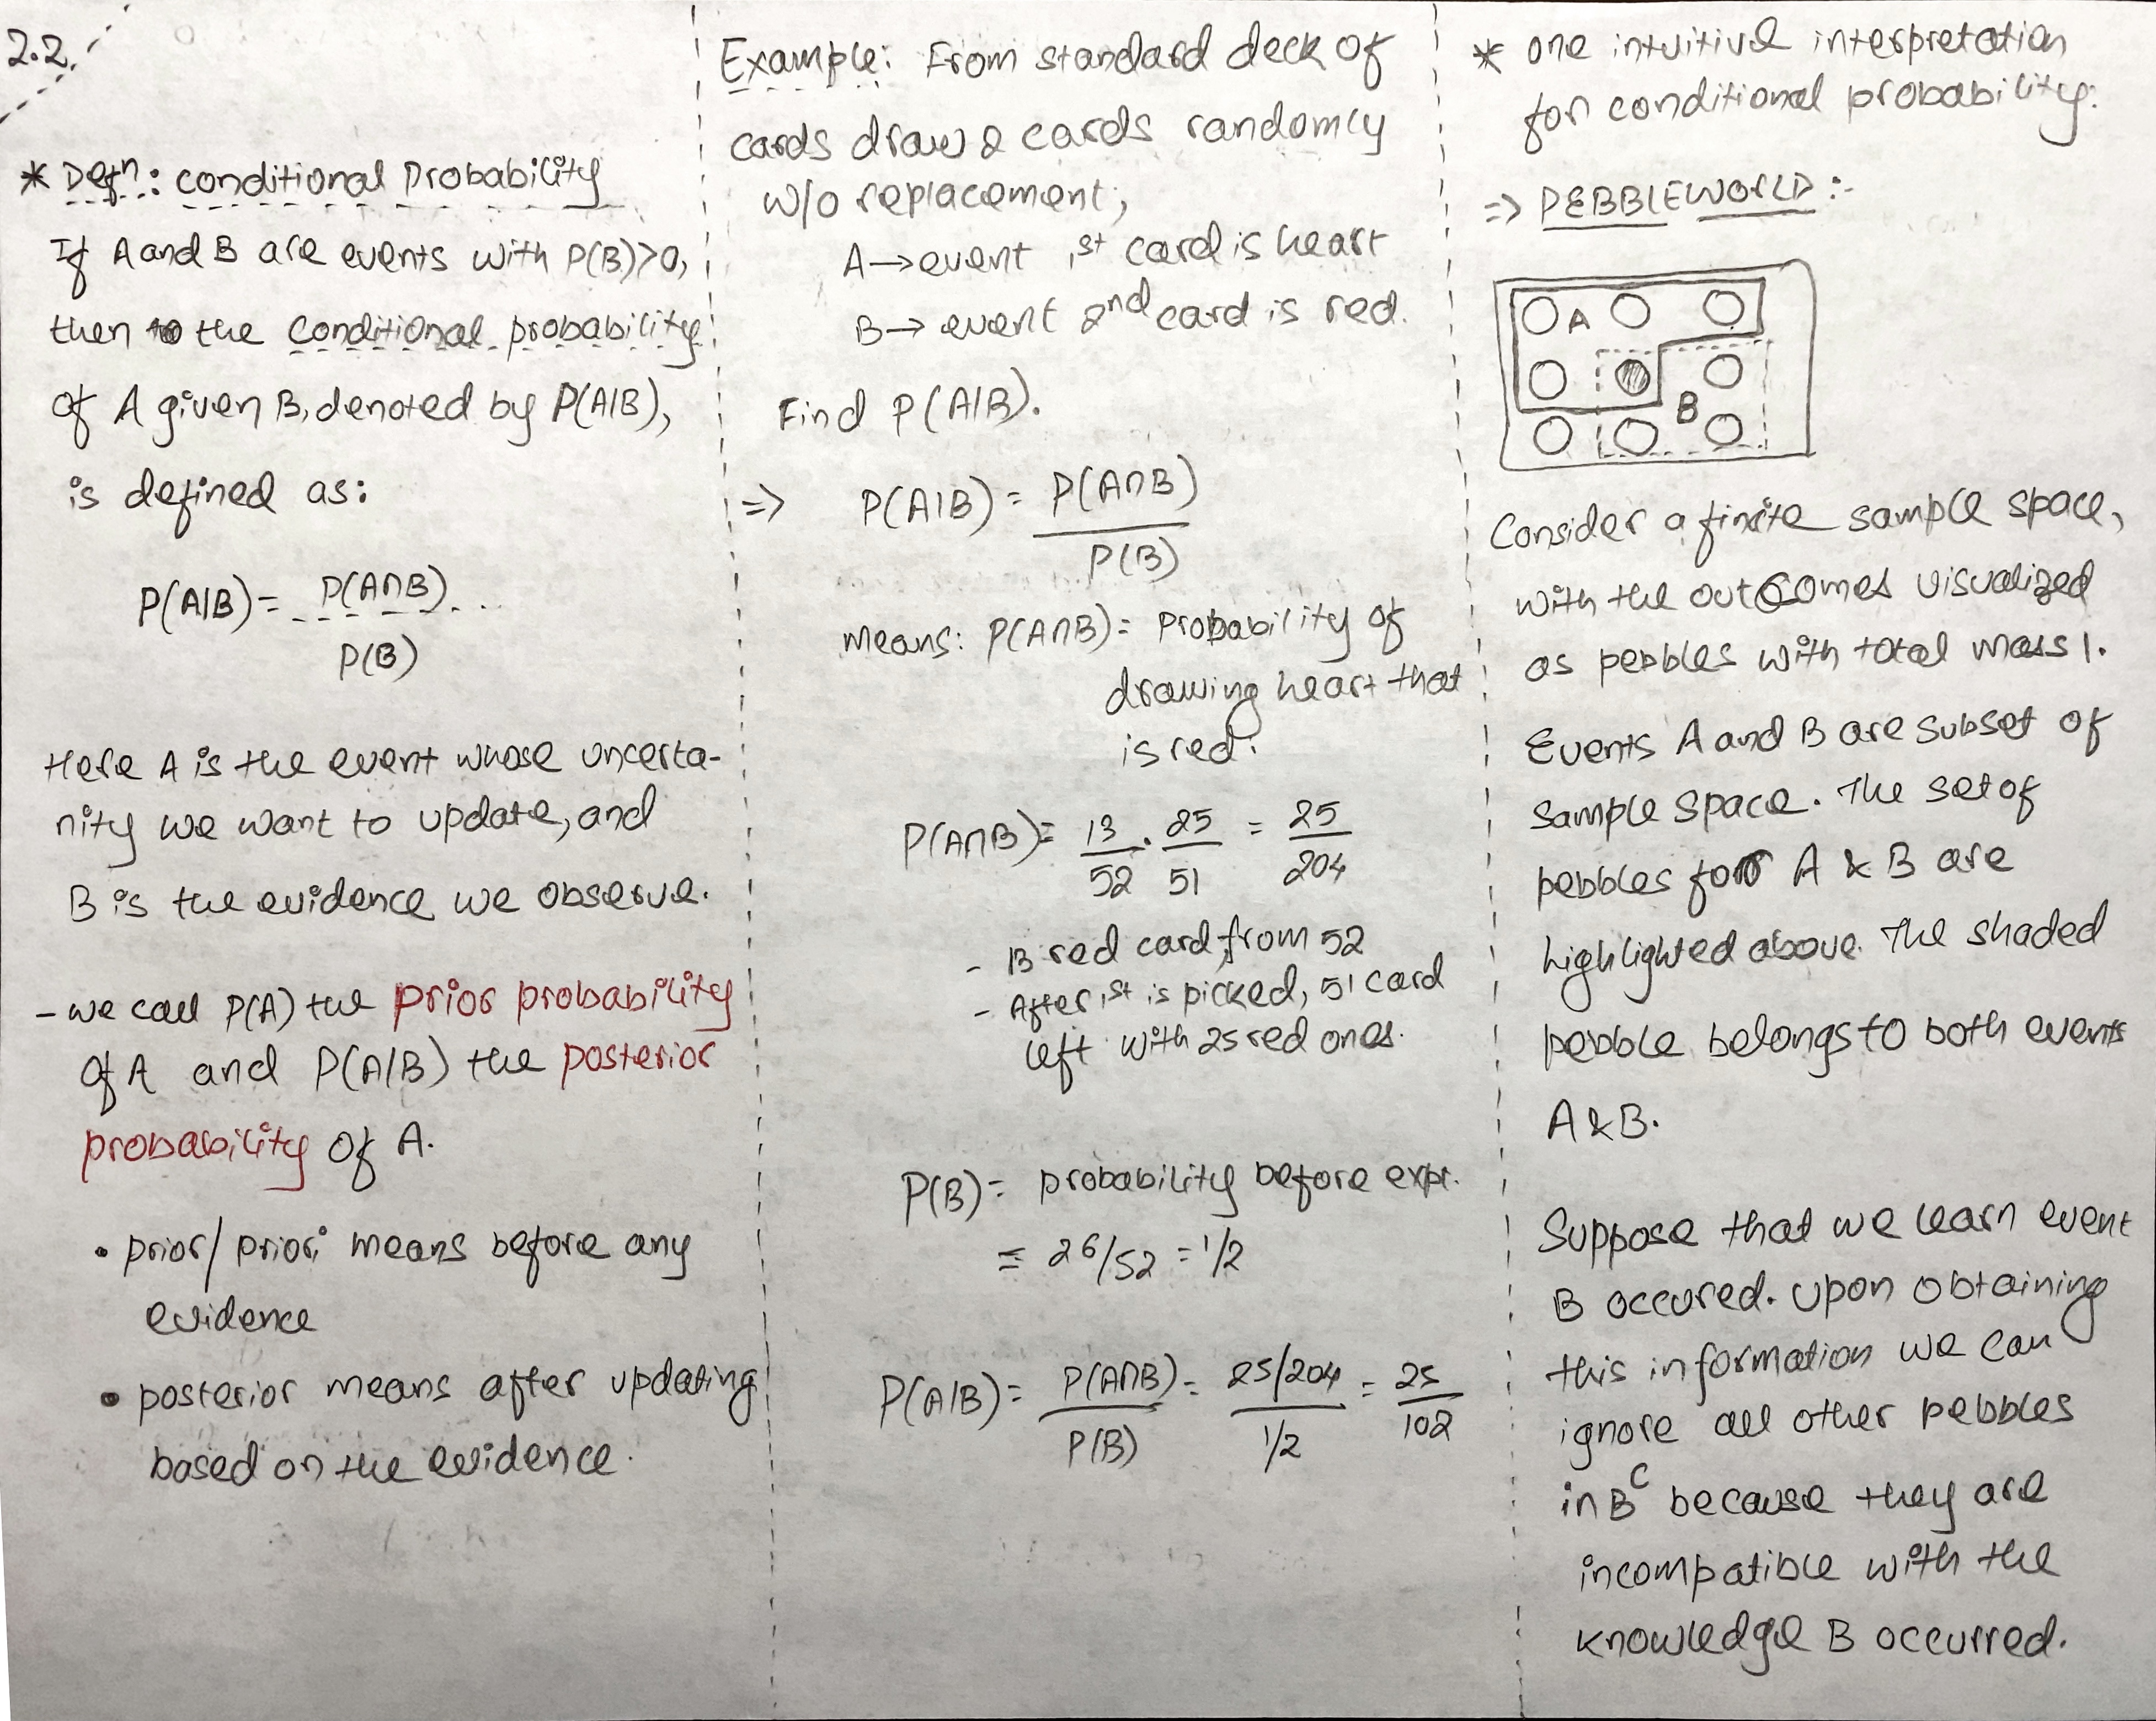 2.2.
* Defn: Conditional Probability
If A and B are events with P(B)>0,
then the conditional probability
of A given B, denoted by P(A|B),
is defined as:
P(A|B) = P(A∩B)
P(B)
Here A is the event whose uncerta-
nity we want to update, and
B is the evidence we observe.
- we call P(A) the prior probability
of A and P(A|B) the posterior
probability of A.
• prior/priori means before any
evidence
• posterior means after updating
based on the evidence.
Example: From standard deck of
cards draw 2 cards randomly
w/o replacement;
A → event 1st card is heart
B → event 2nd card is red.
Find P(A|B).
=> P(A|B) = P(A∩B)
P(B)
means: P(A∩B) = Probability of
drawing heart that
is red.
P(A∩B) = 13/52 . 25/51 = 25/204
- 13 red card from 52
- After 1st is picked, 51 card
left with 25 red ones.
P(B) = probability before expt.
= 26/52 = 1/2
P(A|B) = P(A∩B)/P(B) = 25/204 / 1/2 = 25/102
* one intuitive interpretation
for conditional probability:
=> PEBBLEWORLD :-
A
B
Consider a finite sample space,
with the outcomes visualized
as pebbles with total mass 1.
Events A and B are subset of
sample space. The set of
pebbles for A & B are
highlighted above. The shaded
pebble belongs to both events
A & B.
Suppose that we learn event
B occured. upon obtaining
this information we can
ignore all other pebbles
in Bᶜ because they are
incompatible with the
knowledge B occurred.